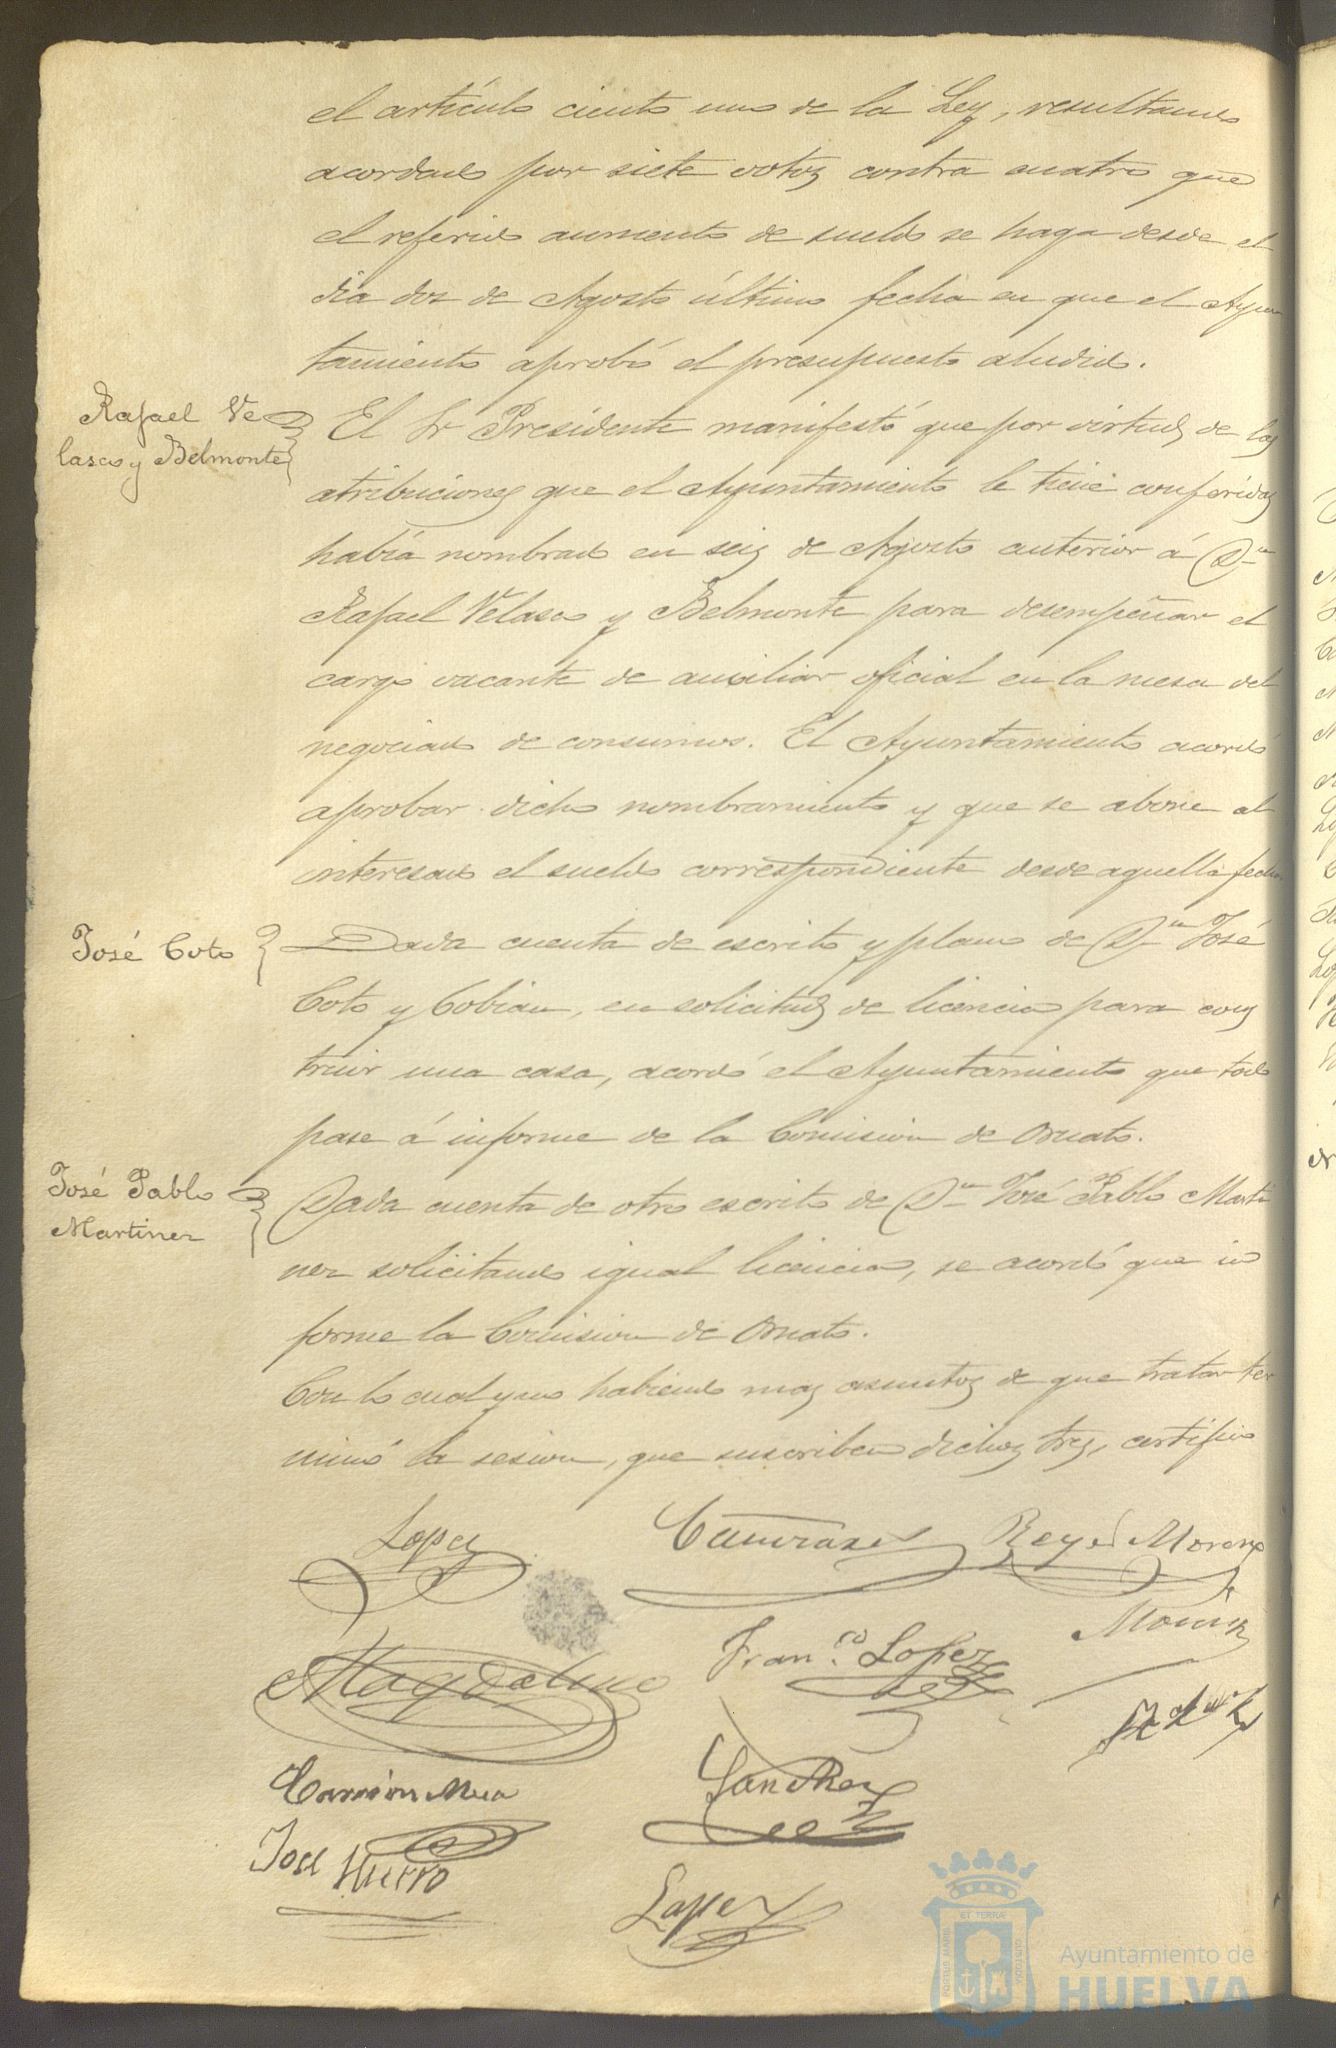 el artículo ciento uno de la Ley, resultando
acordado por siete votos contra cuatro que
el referido aumento de sueldo se haga desde el
dia dos de Agosto último fecha en que el Ayun
tamiento aprobó el presupuesto aludido.
Rafael Ve
lasco y Belmonte
El Sr Presidente manifestó que por virtud de las
atribuciones que el Ayuntamiento le tiene conferidas
había nombrado en seis de Agosto anterior á Dn
Rafael Velasco y Belmonte para desempeñar el
cargo vacante de auxiliar oficial en la mesa del
negociado de consumos. El Ayuntamiento acordó
aprobar dicho nombramiento y que se abone al
interesado el sueldo correspondiente desde aquella fecha
José Coto
Dada cuenta de escrito y plano de Dn José
Coto y Cobian, en solicitud de licencia para cons
truir una casa, acordó el Ayuntamiento que todo
pase á informe de la Comision de Ornato.
José Pablo
Martinez
Dada cuenta de otro escrito de Dn José Pablo Marti
nez solicitando igual licencia, se acordó que in
forme la Comision de Ornato.
Con lo cual y no habiendo mas asuntos de que tratar ter
minó la sesion, que suscriben dichos Sres, certifico
Lopez
Reyes Moreno
Magdaleno
Fran.co Lopez
Garrión
Sanchez
José Hierro
Lopez
PORTUS MARIS
ET TERRÆ
CUSTODIA
Ayuntamiento de
HUELVA